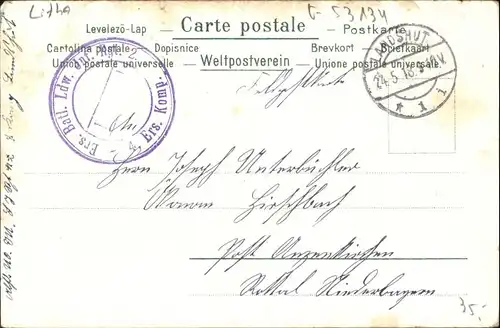 Litho
G-53134
Carte postale
Levelező-Lap
Postkarte
Cartolina postale
Dopisnice
Brevkort - Briefkaart
Union postale universelle
Weltpostverein
Unione postale universale
LANDSHUT
24.5.16.
* 1 1
Feldpostkarte
Ers. Batl. Ldw. Inf. Rgt. 2
4. Ers. Komp.
Herrn Joseph Unterbüchler
Hirschbach
Post Anzenkirchen
Rottal Niederbayern
35,-